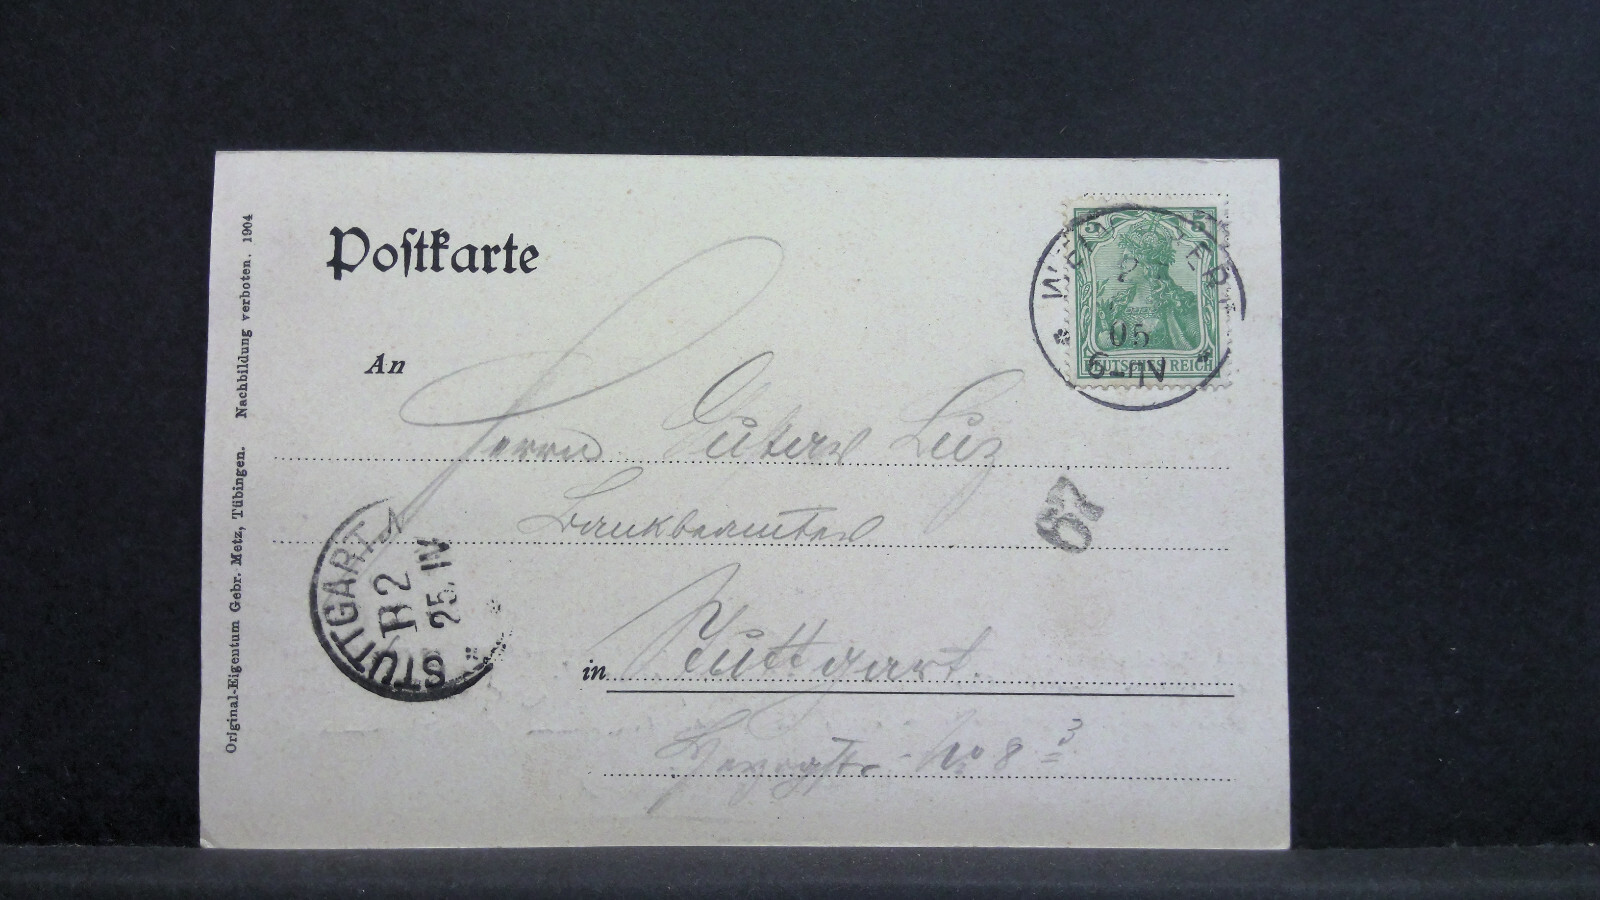 Postkarte
An
Herrn Gustav Luz
Bankbeamter
in Stuttgart.
No 8 3
Original-Eigentum Gebr. Metz, Tübingen. Nachbildung verboten. 1904
5 5
DEUTSCHES REICH
05
6-7N
STUTTGART 1
B2
25. IV
67